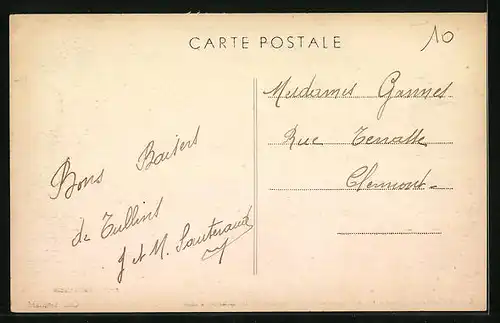 CARTE POSTALE
10
Mesdames Gannes
Rue Terrasse
Clermont-
Bons Baisers
de Tullins
J et M. Sauteraud